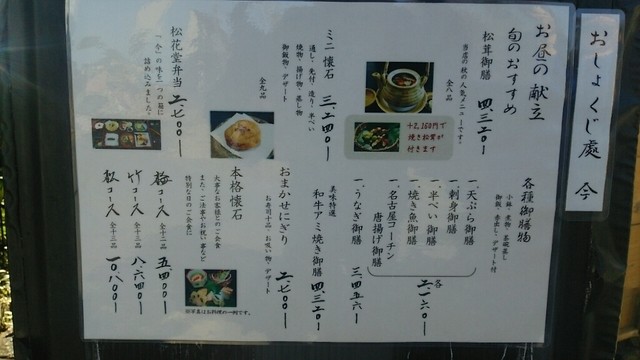 おしょくじ處 今
お昼の献立
旬のおすすめ
松茸御膳 四、三二〇ー
当店の秋の人気メニューです。
全八品
+2,160円で
焼き松茸が
付きます
ミニ懐石 三、二四〇ー
通し・先付・造り・半ぺい
焼物・揚げ物・蒸し物
御飯物・デザート
全九品
松花堂弁当 二、七〇〇ー
「今」の味を一つの箱に
詰め込みました。
各種御膳物
小鉢・煮物・茶碗蒸し
御飯・赤出し・デザート付
一、天ぷら御膳
一、刺身御膳
一、半ぺい御膳
一、焼き魚御膳
一、名古屋コーチン
唐揚げ御膳
各 二、一六〇ー
一、うなぎ御膳 三、四五六ー
美味特選
和牛アミ焼き御膳 四、三二〇ー
おまかせにぎり 二、七〇〇ー
お寿司十品・お吸い物・デザート
本格懐石
大事なお客様とのご会食
また、ご法事やお祝い事など
特別な日のご会食に
梅コース 全十一品 五、四〇〇ー
竹コース 全十二品 八、六四〇ー
松コース 全十三品 一〇、八〇〇ー
※写真はお料理の一例です。